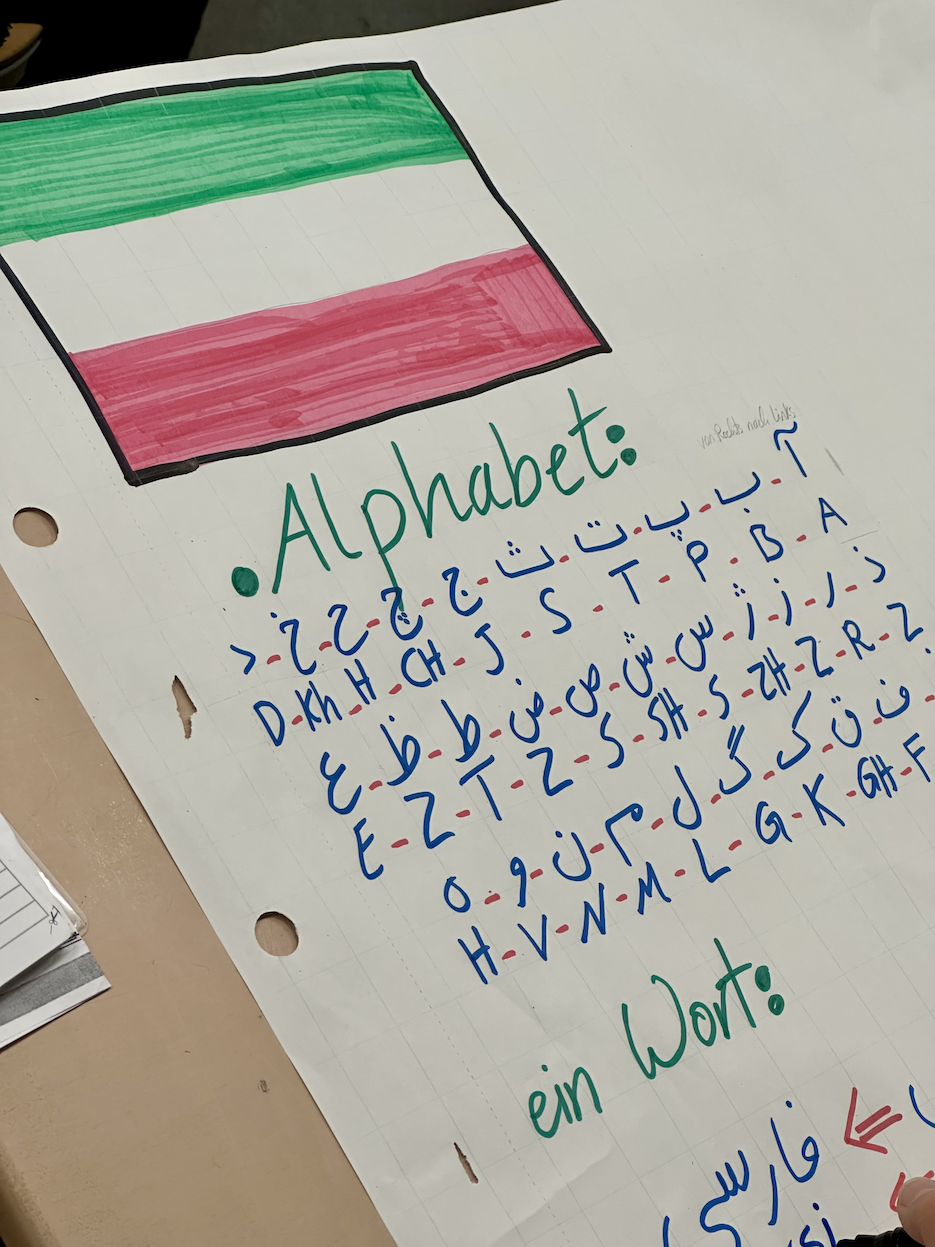 • Alphabet:
von Rechts nach links
آ - ب - پ - ت - ث - ج - چ - ح - خ - د
D - Kh - H - CH - J - S - T - P - B - A
ذ - ر - ز - ژ - س - ش - ص - ض - ط - ظ - ع
E - Z - T - Z - S - SH - S - ZH - Z - R - Z
ف - ق - ک - گ - ل - م - ن - و - ه
H - V - N - M - L - G - K - GH - F
ein Wort:
فارسی